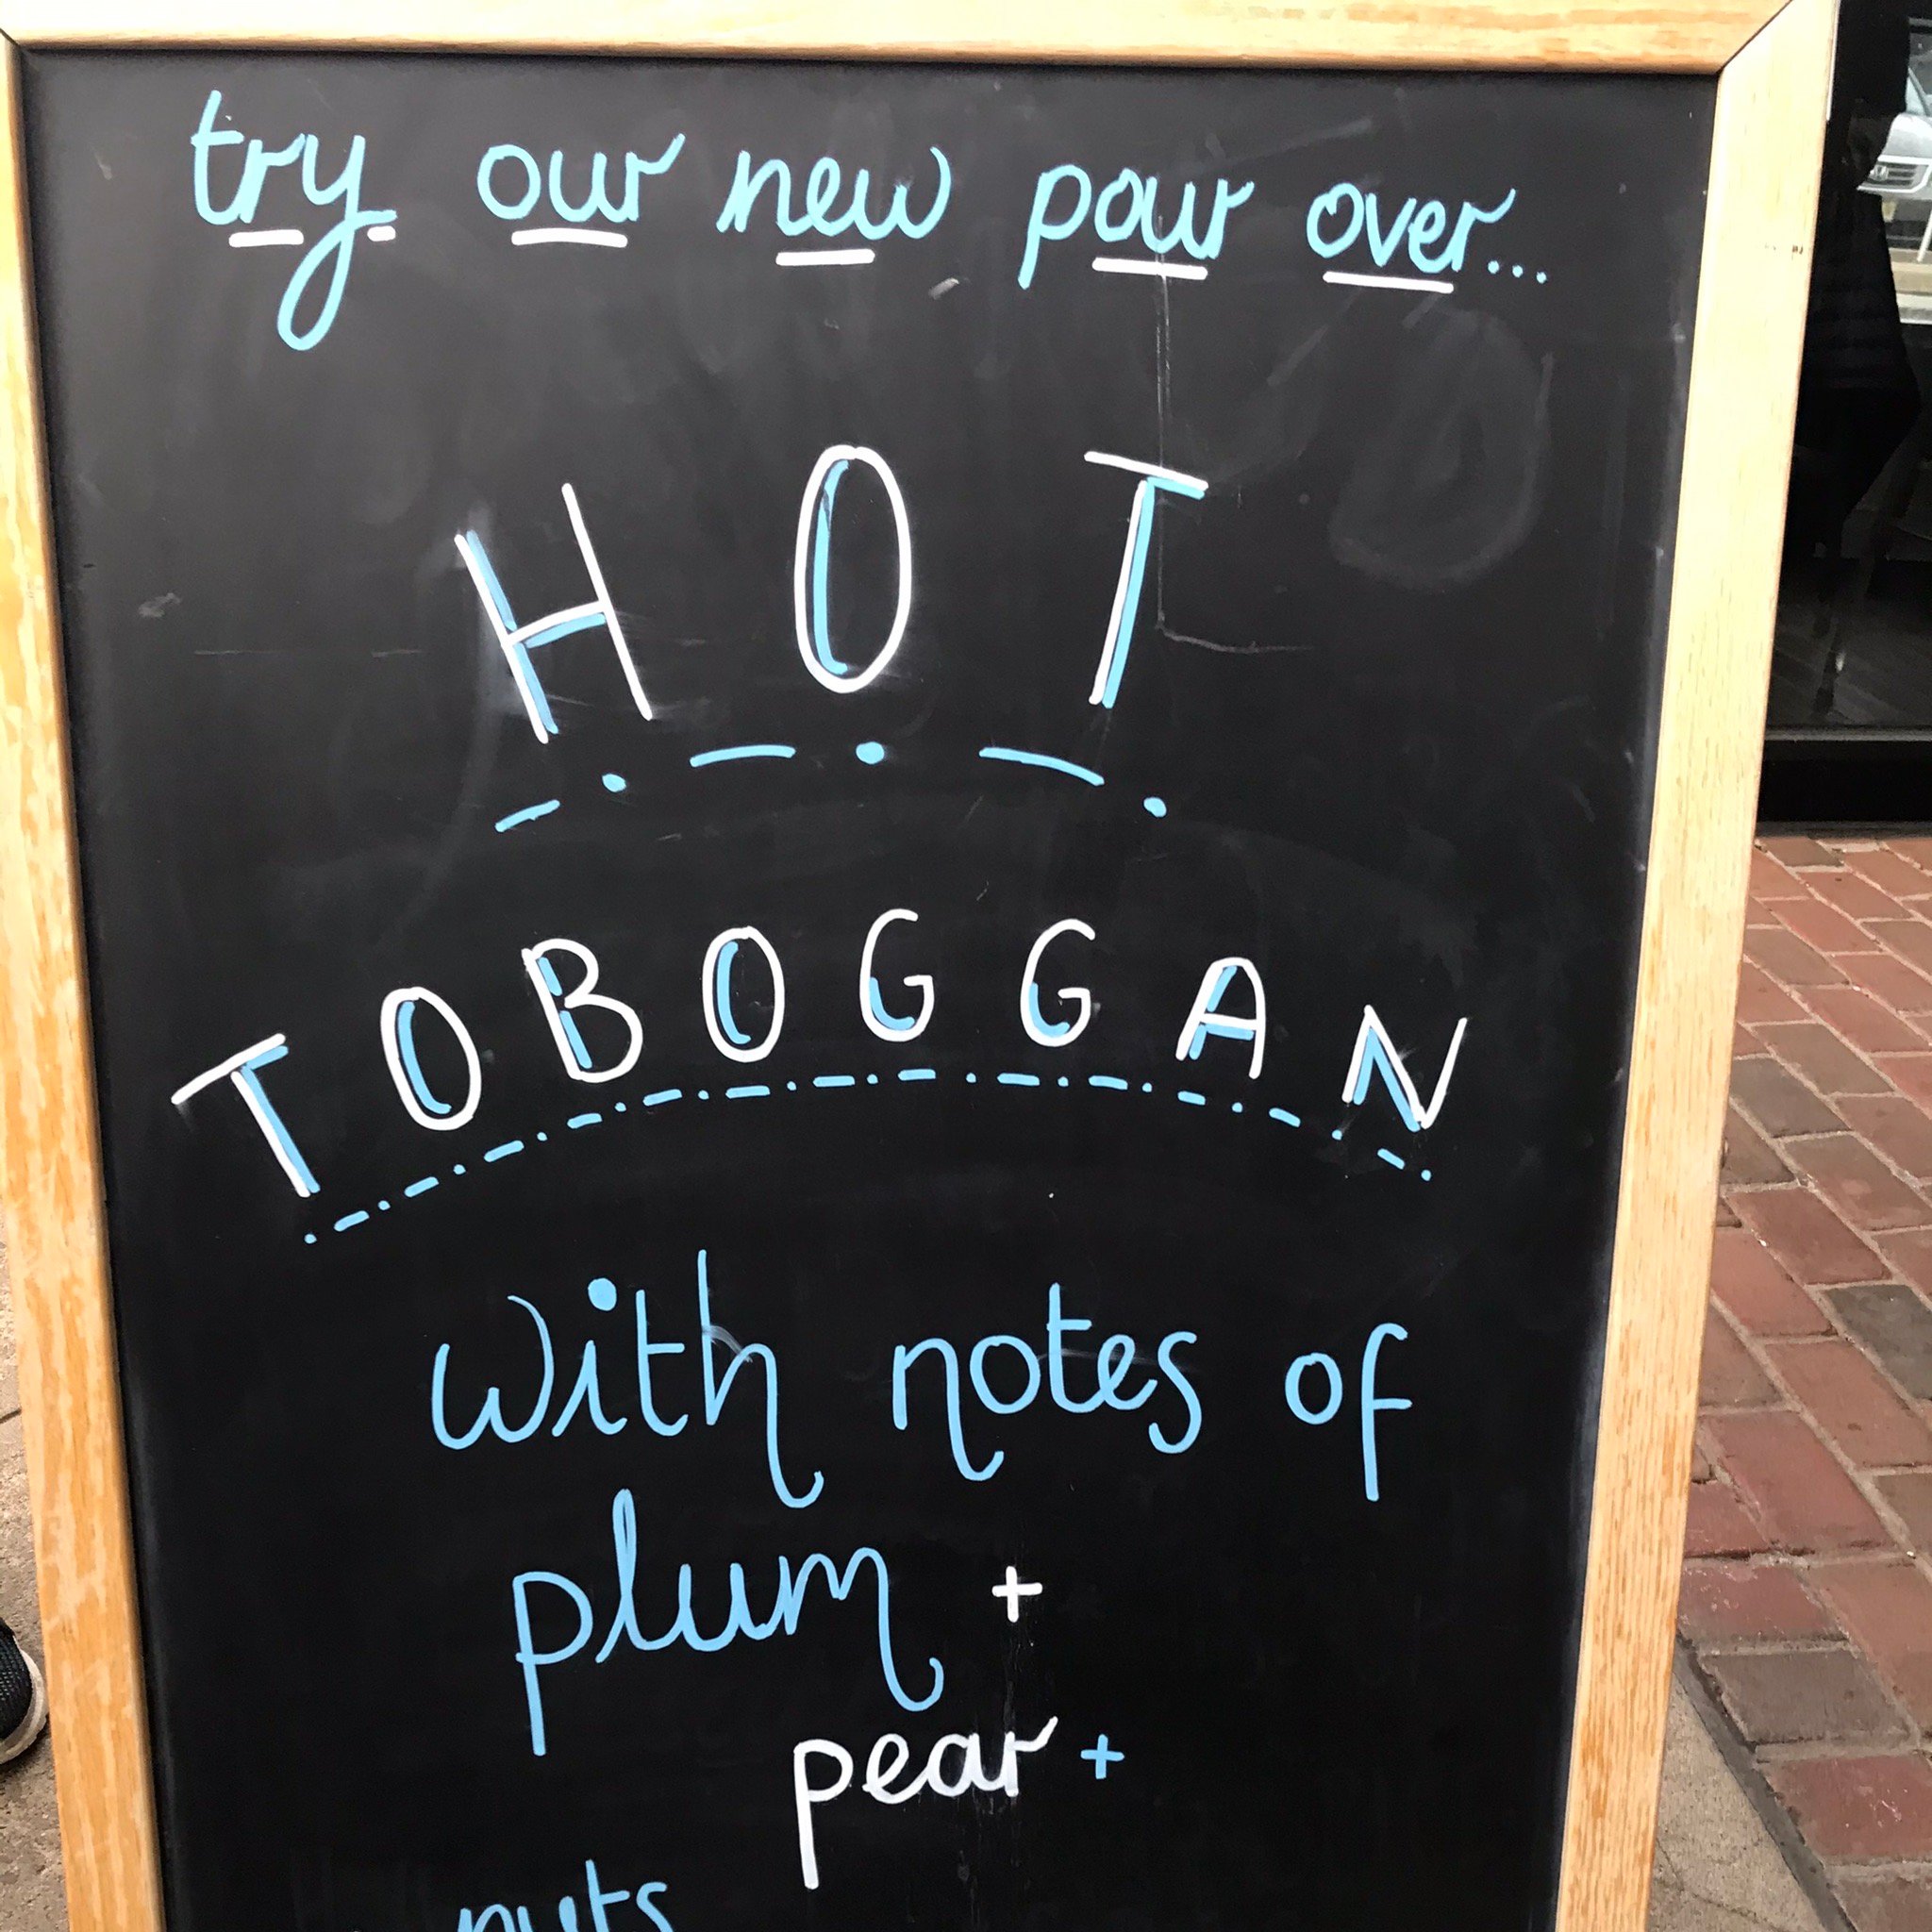 try our new pour over...
HOT
TOBOGGAN
with notes of
plum +
pear +
nuts